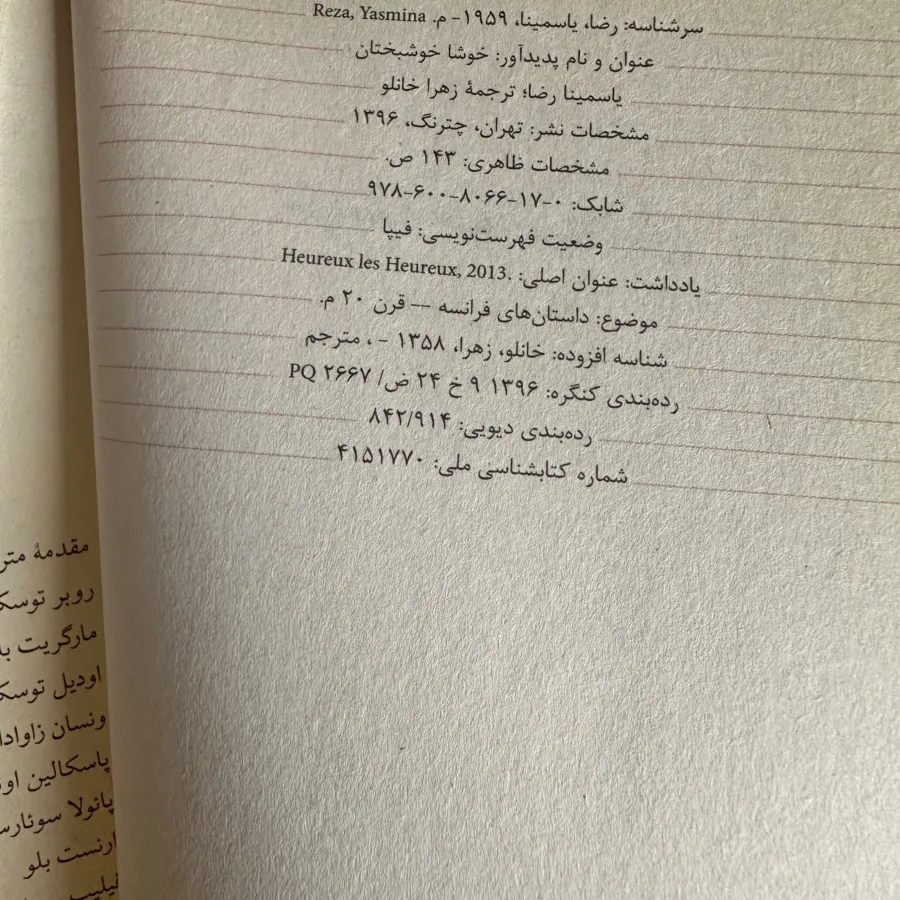 سرشناسه: رضا، یاسمینا، ۱۹۵۹- م. Reza, Yasmina
عنوان و نام پدیدآور: خوشا خوشبختان
یاسمینا رضا؛ ترجمهٔ زهرا خانلو
مشخصات نشر: تهران، چترنگ، ۱۳۹۶
مشخصات ظاهری: ۱۴۳ ص.
شابک: ۰-۱۷-۸۰۶۶-۶۰۰-۹۷۸
وضعیت فهرست‌نویسی: فیپا
یادداشت: عنوان اصلی: .Heureux les Heureux, 2013
موضوع: داستان‌های فرانسه -- قرن ۲۰ م.
شناسه افزوده: خانلو، زهرا، ۱۳۵۸ - ، مترجم
رده‌بندی کنگره: ۱۳۹۶ ۹ خ ۲۴ ض/ PQ ۲۶۶۷
رده‌بندی دیویی: ۸۴۲/۹۱۴
شماره کتابشناسی ملی: ۴۱۵۱۷۷۰
مقدمهٔ متر
روبر توسک
مارگریت بل
اودیل توسک
ونسان زاوادا
پاسکالین اون
پائولا سوئارس
ارنست بلو
فیلیپ